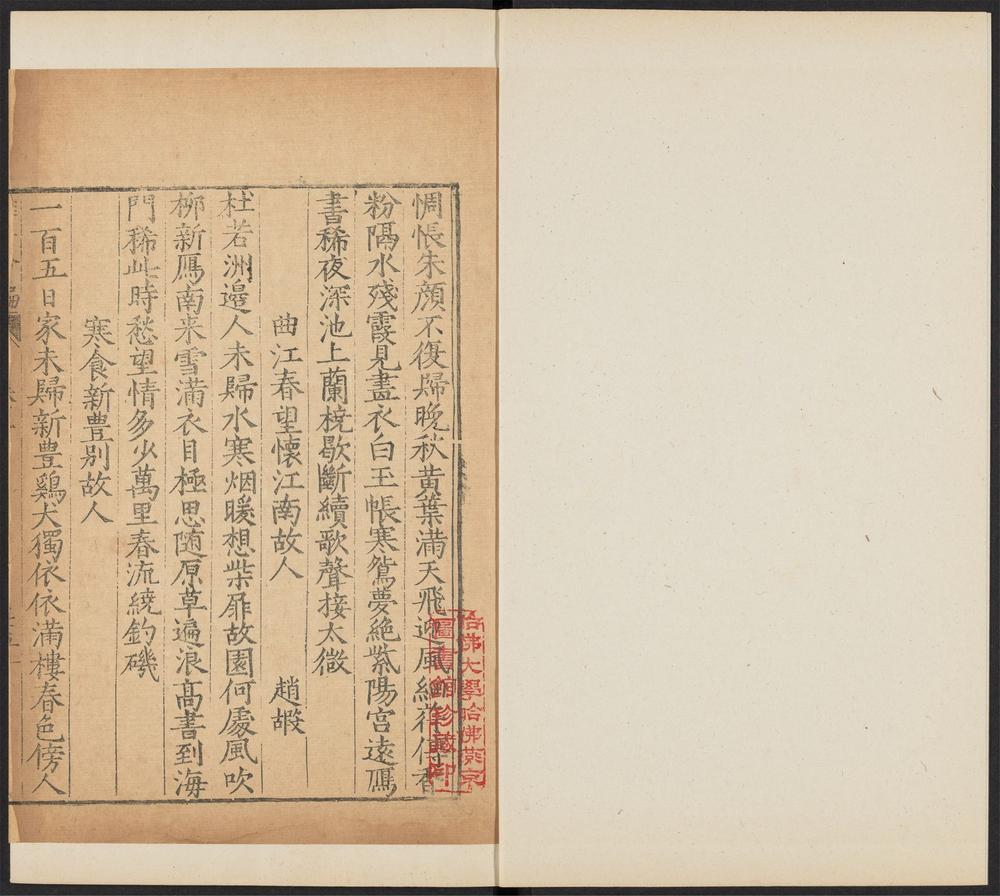 惆悵朱顔不復歸晚秋黄葉滿天飛迎風細荇傳香
粉隔水殘霞見畫衣白玉帳寒鴛夢絶紫陽宫遠鴈
書稀夜深池上蘭橈歇斷續歌聲接太微
曲江春望懷江南故人
趙嘏
杜若洲邉人未歸水寒烟暖想柴扉故園何處風吹
栁新鴈南来雪滿衣目極思随原草遍浪髙書到海
門稀此時愁望情多少萬里春流繞釣磯
寒食新豊别故人
一百五日家未歸新豊鷄犬獨依依滿樓春色傍人
哈佛大學哈佛燕京
圖書館珍藏印